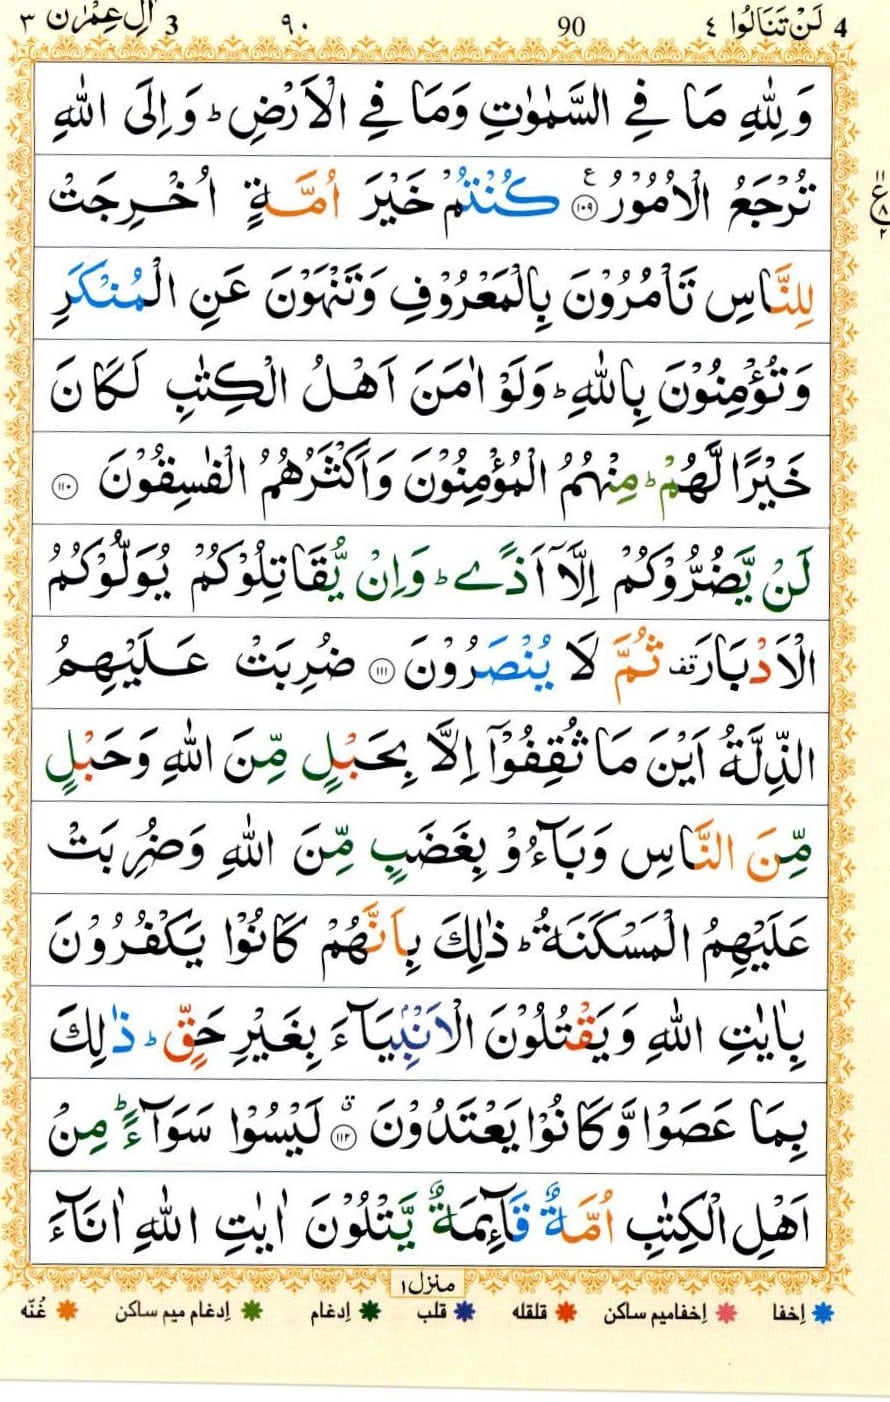 4 لَنْ تَنَالُوا ٤ 90 ٩٠ 3 اٰلِ عِمْرٰن ٣
وَلِلّٰهِ مَا فِي السَّمٰوٰتِ وَمَا فِي الْاَرْضِ ؕ وَاِلَى اللّٰهِ
تُرْجَعُ الْاُمُوْرُ ۧ ﴿۱۰۹﴾ كُنْتُمْ خَيْرَ اُمَّةٍ اُخْرِجَتْ
لِلنَّاسِ تَاْمُرُوْنَ بِالْمَعْرُوْفِ وَتَنْهَوْنَ عَنِ الْمُنْكَرِ
وَتُؤْمِنُوْنَ بِاللّٰهِ ؕ وَلَوْ اٰمَنَ اَهْلُ الْكِتٰبِ لَكَانَ
خَيْرًا لَّهُمْ ؕ مِنْهُمُ الْمُؤْمِنُوْنَ وَاَكْثَرُهُمُ الْفٰسِقُوْنَ ﴿۱۱۰﴾
لَنْ يَّضُرُّوْكُمْ اِلَّاۤ اَذًى ؕ وَاِنْ يُّقَاتِلُوْكُمْ يُوَلُّوْكُمُ
الْاَدْبَارَ ࣞقف ثُمَّ لَا يُنْصَرُوْنَ ﴿۱۱۱﴾ ضُرِبَتْ عَلَيْهِمُ
الذِّلَّةُ اَيْنَ مَا ثُقِفُوْۤا اِلَّا بِحَبْلٍ مِّنَ اللّٰهِ وَحَبْلٍ
مِّنَ النَّاسِ وَبَآءُوْ بِغَضَبٍ مِّنَ اللّٰهِ وَضُرِبَتْ
عَلَيْهِمُ الْمَسْكَنَةُ ؕ ذٰلِكَ بِاَنَّهُمْ كَانُوْا يَكْفُرُوْنَ
بِاٰيٰتِ اللّٰهِ وَيَقْتُلُوْنَ الْاَنْۢبِيَآءَ بِغَيْرِ حَقٍّ ؕ ذٰلِكَ
بِمَا عَصَوْا وَّكَانُوْا يَعْتَدُوْنَ ۙ ﴿۱۱۲﴾ لَيْسُوْا سَوَآءً ؕ مِنْ
اَهْلِ الْكِتٰبِ اُمَّةٌ قَآئِمَةٌ يَّتْلُوْنَ اٰيٰتِ اللّٰهِ اٰنَآءَ
منزل ۱
اِخفا اِخفامیم ساکن قلقله قلب اِدغام اِدغام میم ساکن غُنّه